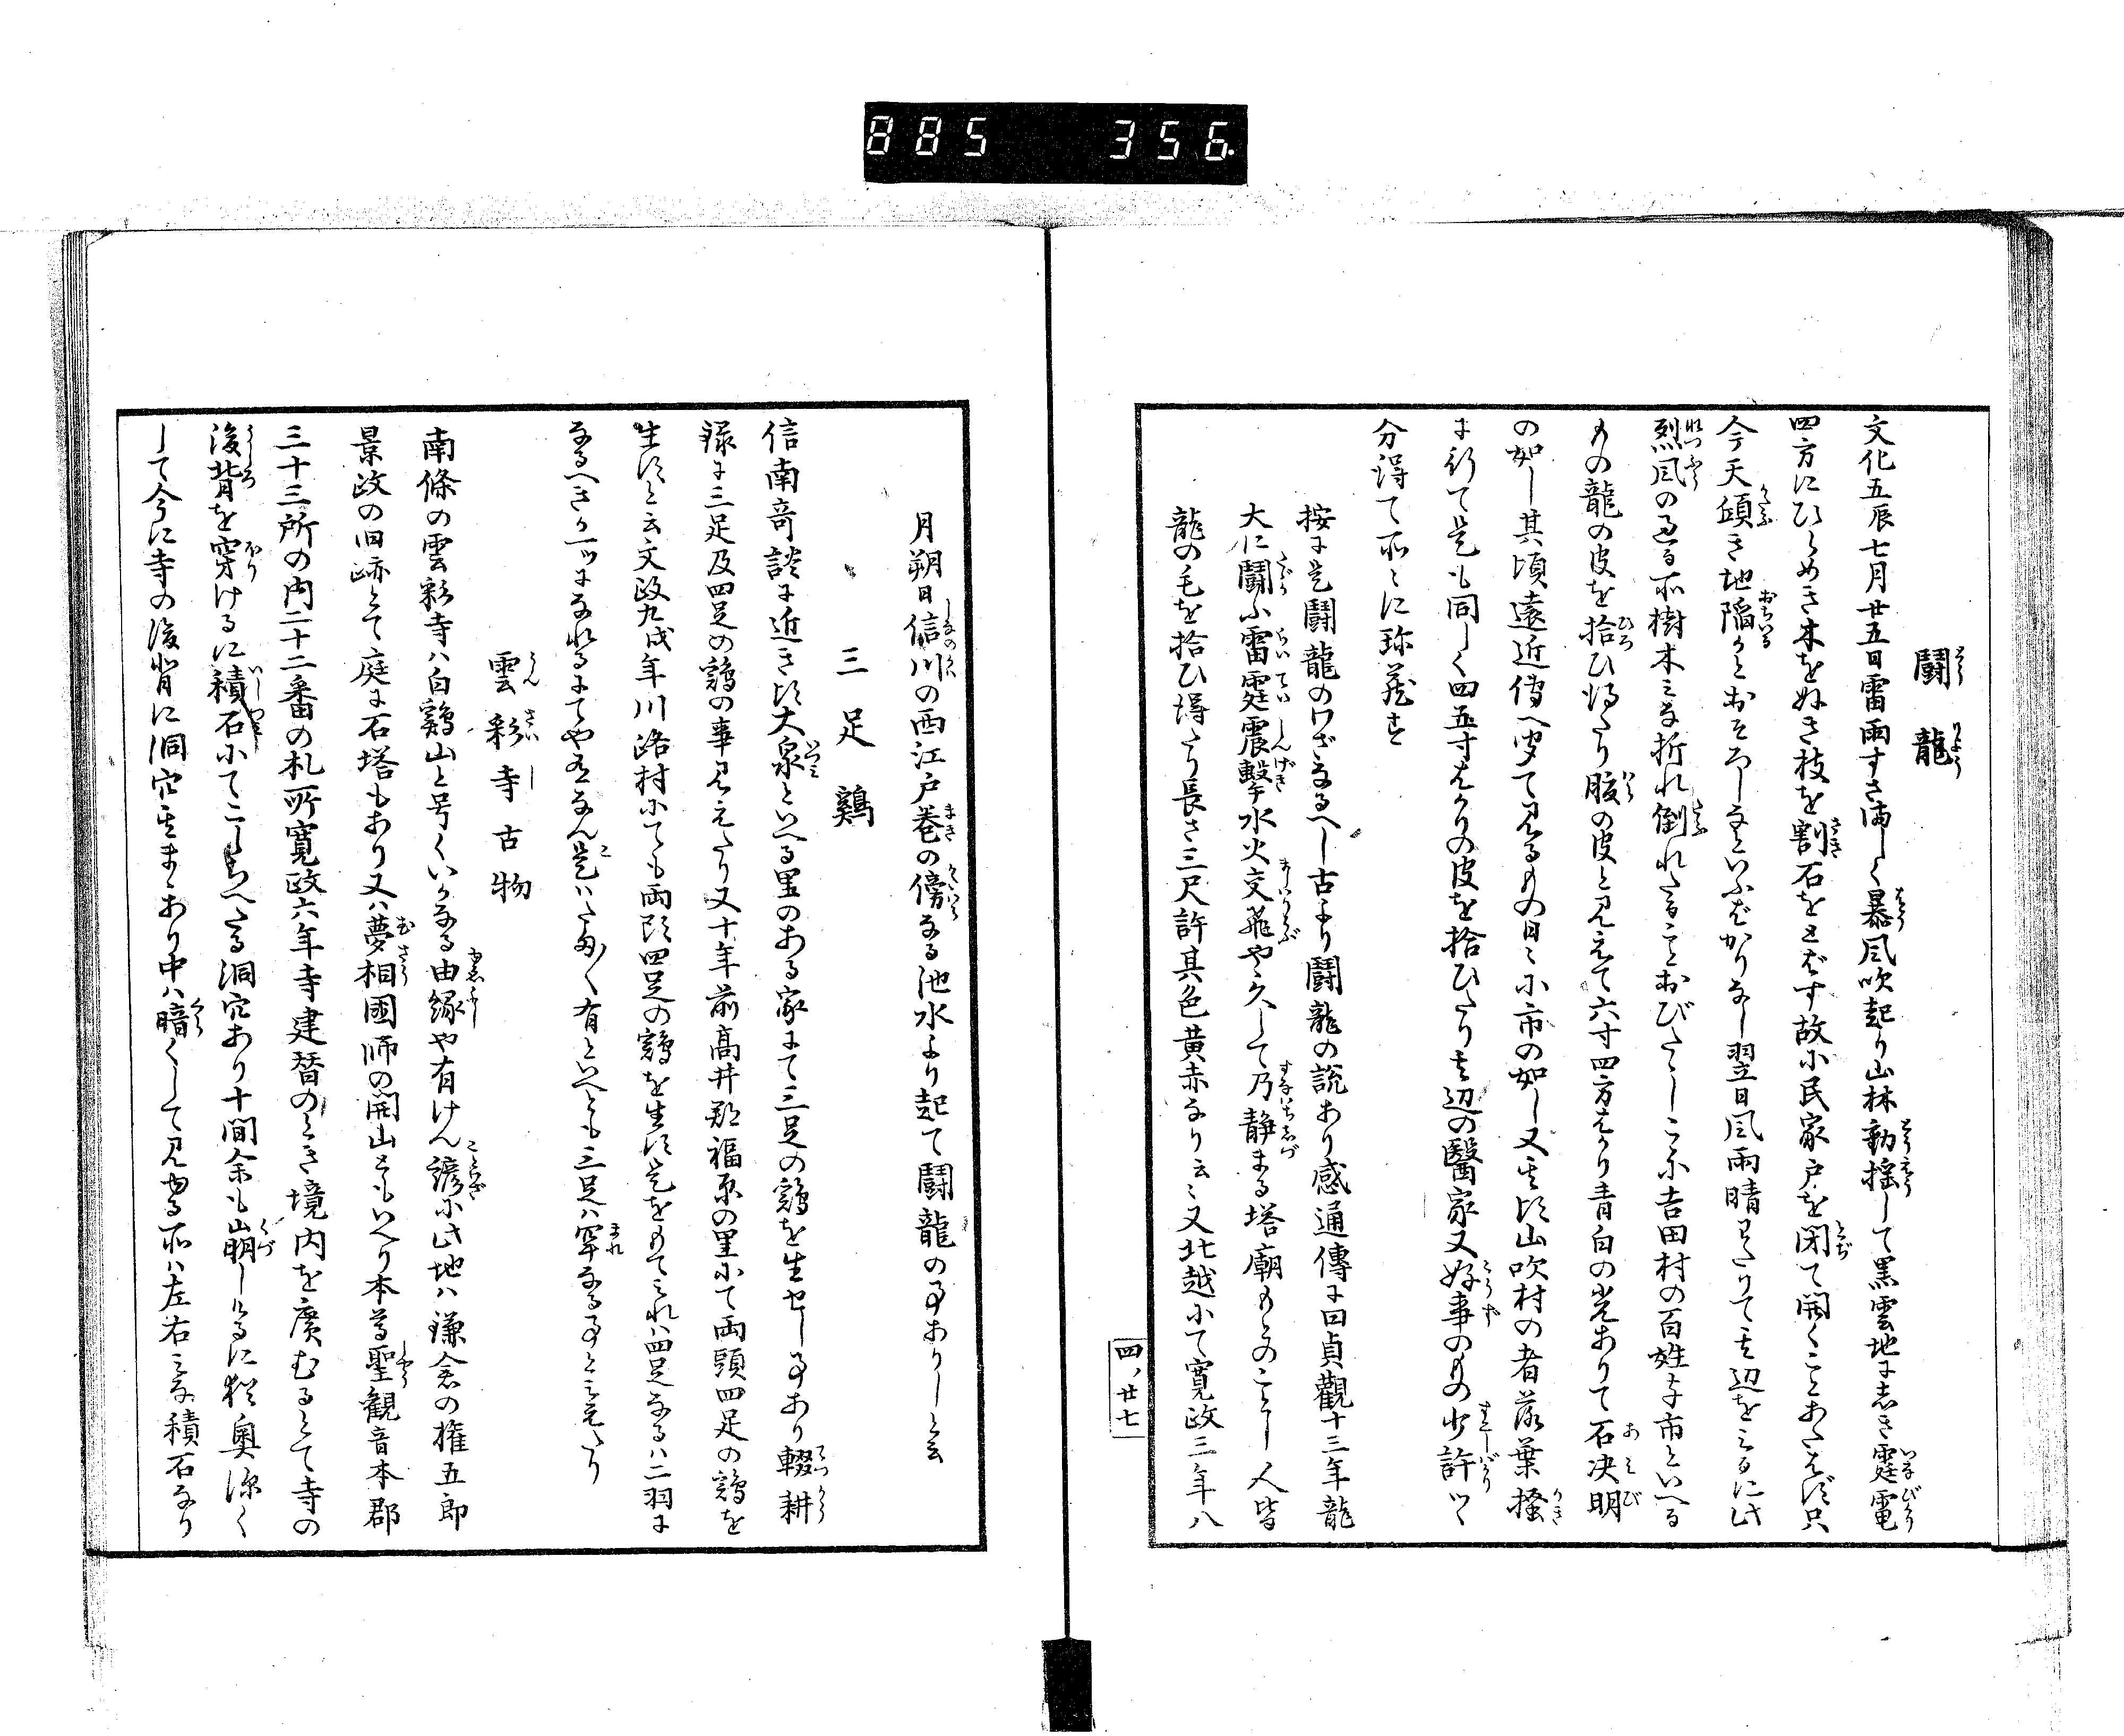 885 356
闘龍
文化五辰七月廿五日雷雨すさましく暴風吹起り山林動揺して黒雲地にしき霆電
四方にひらめき木をぬき枝を割石をとばす故に民家戸を閉て開くことあたはず只
今天傾き地陥かとおそろしなといふばかりなし翌日風雨晴わたりて其辺をみるに此
烈風の通る所樹木みな折れ倒れたることおびたゝしこゝに吉田村の百姓与市といへる
もの龍の皮を拾ひ得たり腹の皮と見えて六寸四方はかり青白の光ありて石决明
の如し其頃遠近傳へ聞て見るもの日々に市の如し又其頃山吹村の者落葉掻
に行て是も同しく四五寸はかりの皮を拾ひたり其辺の醫家又好事のもの少許ツヽ
分得て所々に珍蔵せり
按に是闘龍のわざなるへし古より闘龍の説あり感通傳に曰貞觀十三年龍
大に闘ふ雷霆震撃水火交飛や久して乃静まる塔廟もとのことし人皆
龍の毛を拾ひ得たり長さ三尺許其色黄赤なり云々又北越にて寛政三年八
四ノ廿七
月朔日信川の西江戸巻の傍なる池水より起て闘龍の事ありしと云
三足鷄
信南竒談に近き頃大泉といへる里のある家にて三足の鶏を生せし事あり輟耕
録に三足及四足の鶏の事見えたり又十年前高井郡福原の里にて両頭四足の鶏を
生ずと云文政九戌年川路村にても両頭四足の鶏を生ず是をもてみれハ四足なるハ二羽に
なるへきか一ツになれるにてや有なん是ハたま／＼有といへとも三足ハ罕なる事とみえたり
雲彩寺古物
南條の雲彩寺ハ白鷄山と号くいかなる由縁や有けん諺に此地ハ鎌倉の権五郎
景政の旧跡とて庭に石塔もあり又ハ夢相國師の開山ともいへり本尊聖観音本郡
三十三所の内二十二番の札所寛政六年寺建替のとき境内を廣むるとて寺の
後背を穿けるに積石にてこしらへたる洞穴あり十間余も山崩しけるに猶奥深く
して今に寺の後背に洞穴其まゝあり中ハ暗くして見ゆる所ハ左右みな積石なり